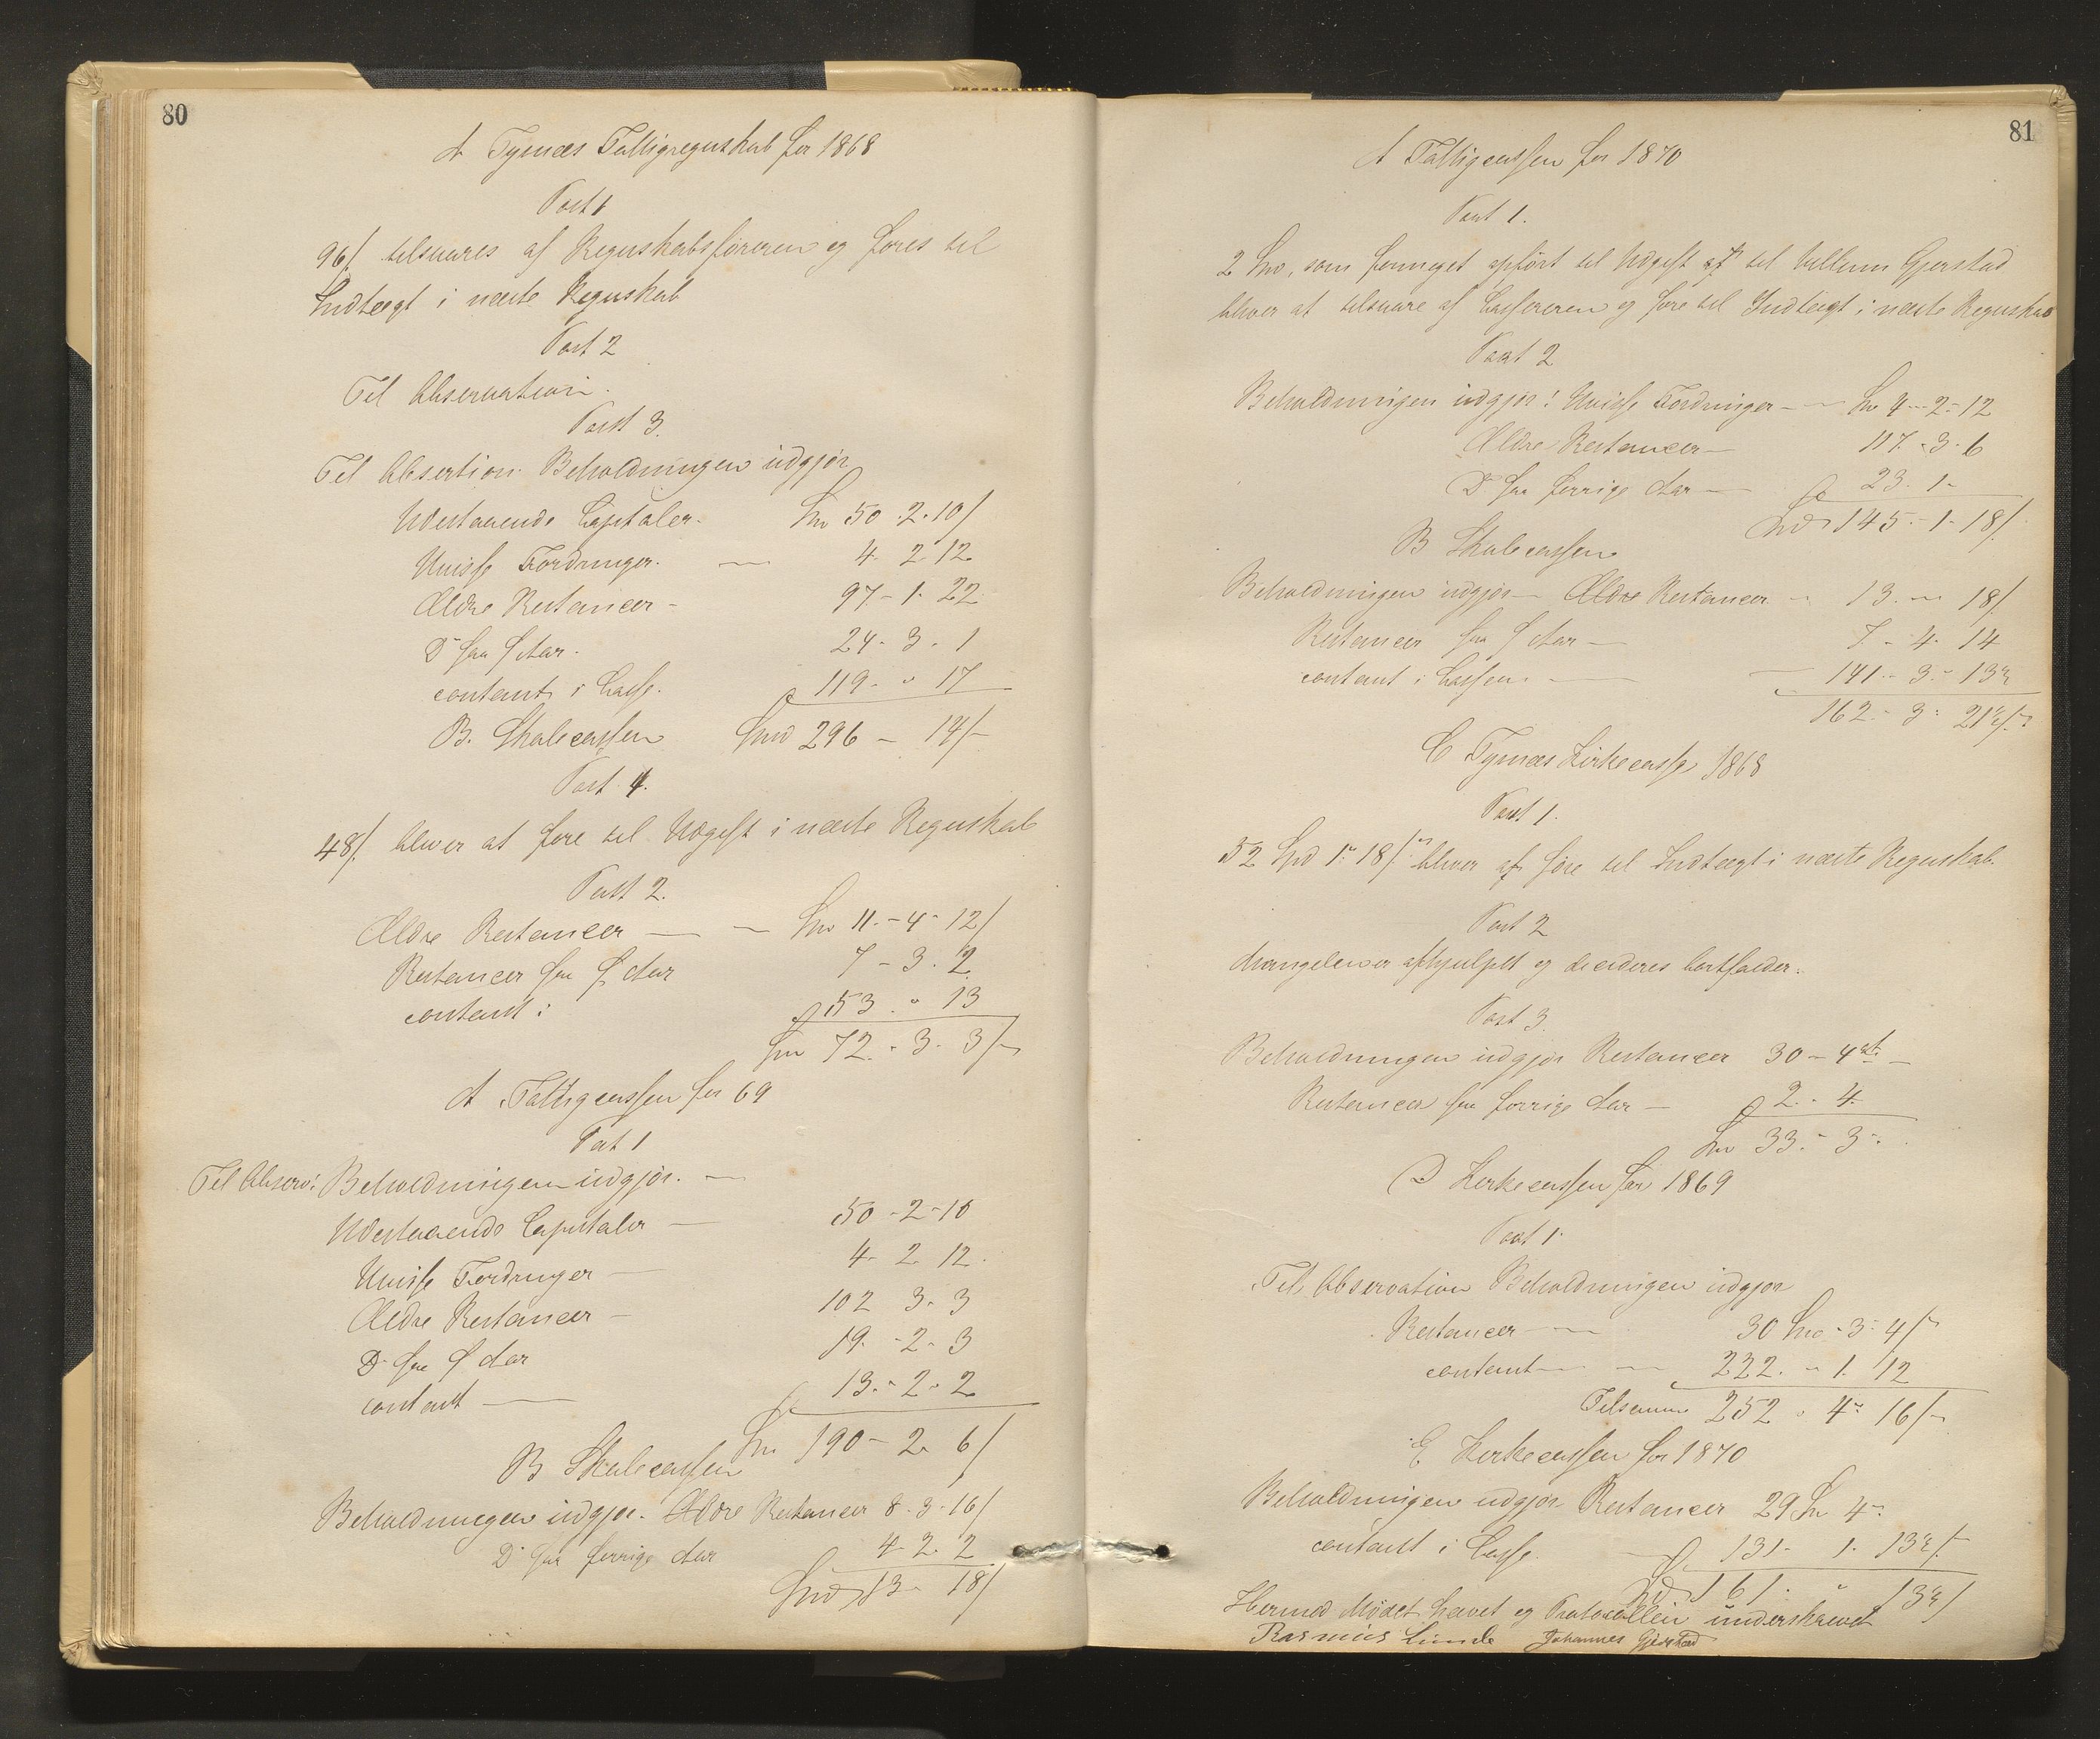 80
A Tysnæs Fattigregnskab for 1868
Post 1
96/ tilsvares af Regnskabsføreren og føres til
Indtægt i næste Regnskab
Post 2
Til Observation.
Post 3.
Til Absertion Beholdningen udgjør
Udestaaende Capitaler. Spd 50 . 2 . 10/
Uvisse Fordringer. — 4 . 2 12
Ældre Restancer - 97 - 1 . 22
Do fra f Aar. 24 . 3 . 1
contant i Casse. 119 . " 17
B. Skolecassen Spd 296 — 14/-
Post 4.
48/. bliver at føre til Udgift i næste Regnskab
Post 2.
Ældre Restancer — — Spd 11. - 4 - 12/
Restancer fra f Aar 7 - 3 . 2
contant : 53 . " 13
Spd 72 . - 3 . 3/-
A Fattigcassen for 69
Post 1
Til Observ: Beholdningen udgjør. —
Udestaaende Capitaler — 50 - 2 - 10
Uvisse Fordringer — 4 . 2 12 .
Ældre Restancer — 102 3 . 3
Do fra f Aar 19 . - 2 - 3
contant — 13 . - 2 - 2
Spd 190 - 2 . 6/
B Skolecassen
Beholdningen udgjør. Ældre Restancer 8 . 3 . 16/
Do fra forrige Aar 4 2 . 2
Spd 13 . 18/
81
A Fattigcassen for 1870
Post 1.
2 Spd, som formeget opført til Udgift af til Villum Gjerstad
bliver at tilsvare af Cassereren og føre til Indtægt i næste Regnskab
Post 2
Beholdningen udgjør: Uvisse Fordringer - — Spd 4 - 2 - 12
Ældre Restancer — 117 . 3 . 6
Do fra forrige Aar — 23 . 1 -
Spd 145 . - 1 - 18/.
B Skolecassen
Beholdningen udgjør — Ældre Restancer - 13 . — 18/
Restancer fra f Aar — 7 - 4 . 14
contant i Cassen. — 141 - 3 . - 13½
162 . - 3 - 21½/-
C Tysnæs Kirkecasse 1868
Post 1.
52 Spd 1 " 18/ bliver at føre til Indtægt i næste Regnskab.
Post 2
Mangelen er afhjulpet og decideres bortfalder.
Post 3.
Beholdningen udgjør Restancer 30 - 4 —
Restancer fra forrige Aar — 2 . - 4.
Spd 33 . - 3 - .
D Kirkecassen for 1869
Post 1.
Til Observation Beholdningen udgjør
Restancer — 30 Spd - 3 - 4/
contant — — 222 . - 1 . 12
Tilsamm 252 . 4 - 16/-
E Kirkecassen for 1870
Beholdningen udgjør Restancer 29 Spd 4 -
contant i Casse. 131 - 1 . 13½/-
Spd 161 . " 13½/
Hermed Mødet hævet og Protocollen underskrevet
Rasmus Lunde Johannes Gjerstad